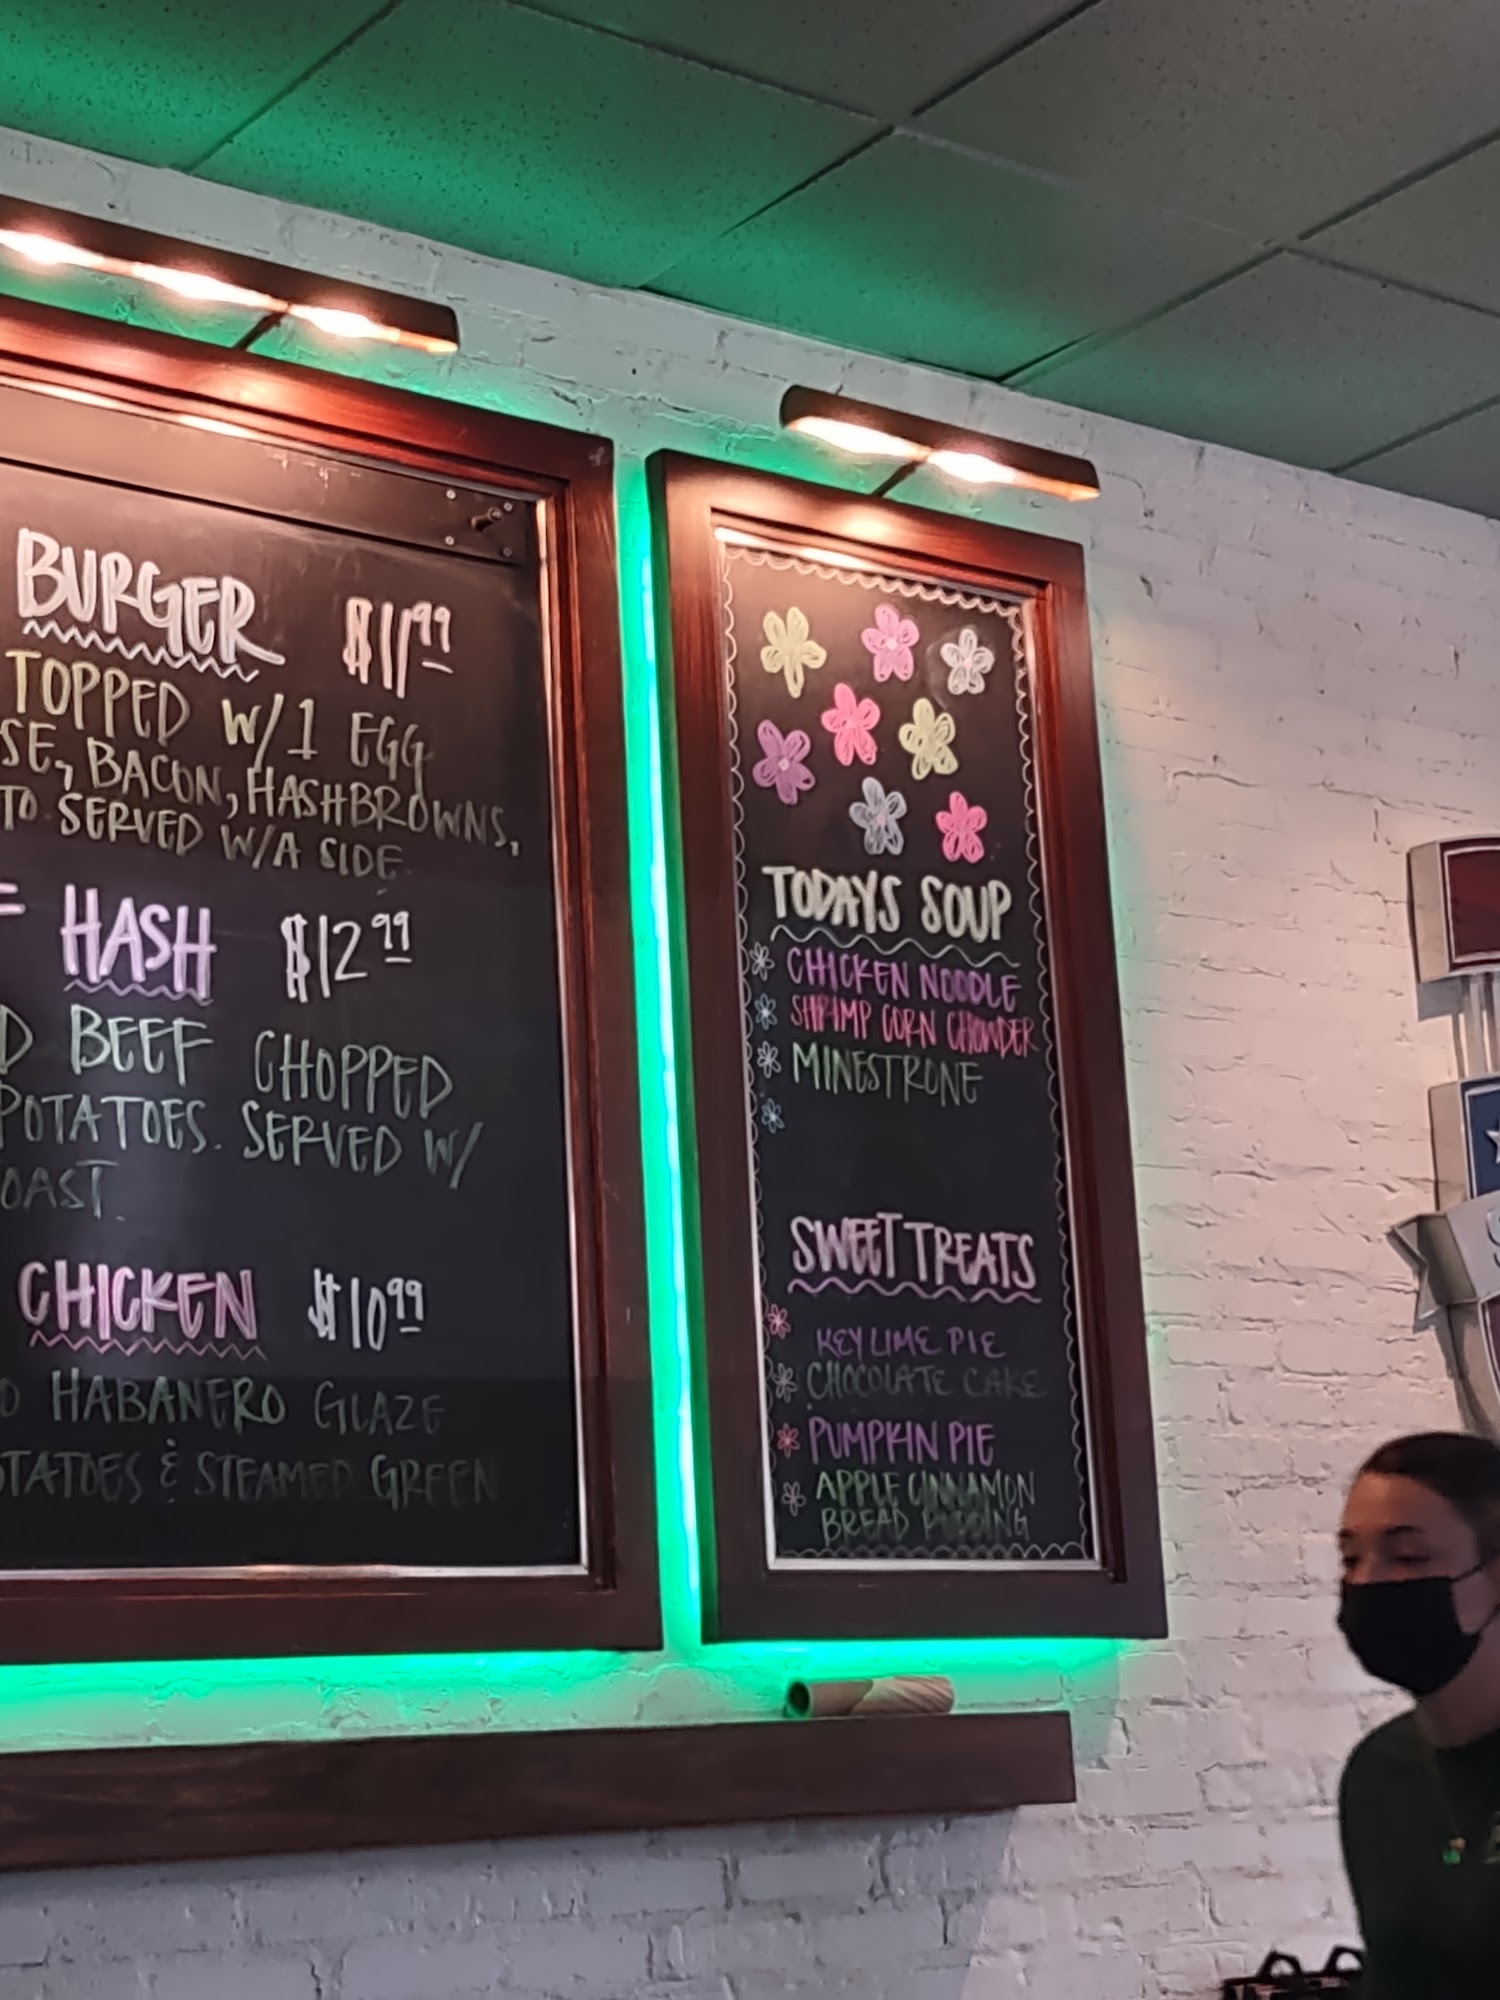 BURGER $11.99
TOPPED W/1 EGG
SE, BACON, HASHBROWNS,
TO. SERVED W/A SIDE.
HASH $12.99
D BEEF CHOPPED
POTATOES. SERVED W/
OAST.
CHICKEN $10.99
O HABANERO GLAZE
TATOES & STEAMED GREEN
TODAYS SOUP
CHICKEN NOODLE
SHRIMP CORN CHOWDER
MINESTRONE
SWEET TREATS
KEY LIME PIE
CHOCOLATE CAKE
PUMPKIN PIE
APPLE CINNAMON
BREAD PUDDING